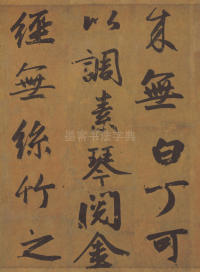 来無白丁可
以調素琴閱金
經無絲竹之
墨客书法字典